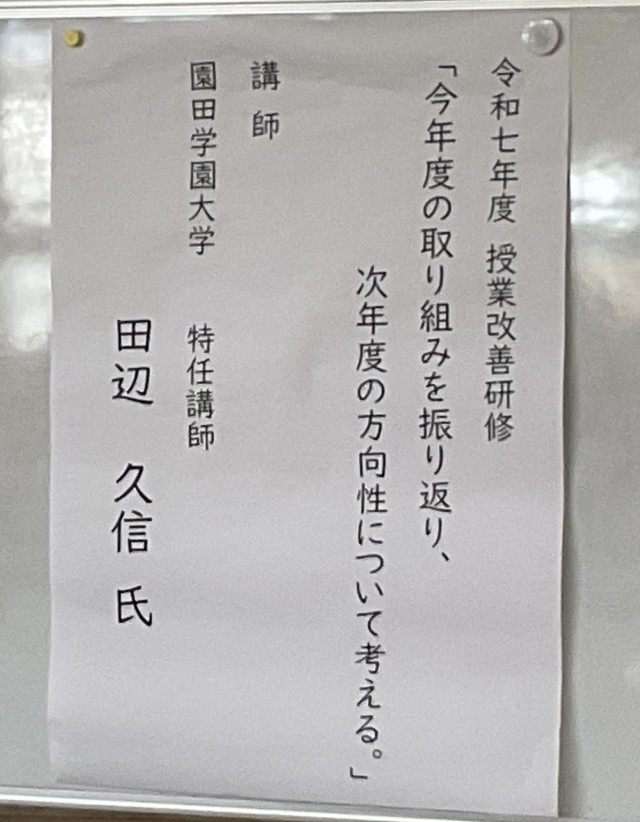 令和七年度 授業改善研修
「今年度の取り組みを振り返り、
次年度の方向性について考える。」
講師
園田学園大学 特任講師
田辺 久信 氏